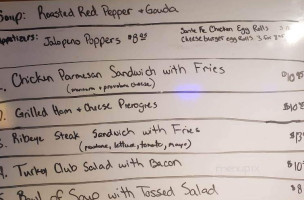 Soup: Roasted Red Pepper + Gouda
Appetizers: Jalapeno Poppers $8
Sante Fe Chicken Egg Rolls
Cheeseburger egg Rolls 3 for
Chicken Parmesan Sandwich with Fries
(marinara + provolone cheese)
Grilled Ham + Cheese Pierogies
Ribeye Steak Sandwich with Fries
(peudune, lettuce, tomato, mayo)
Turkey Club Salad with Bacon
Bowl of Soup with Tossed Salad